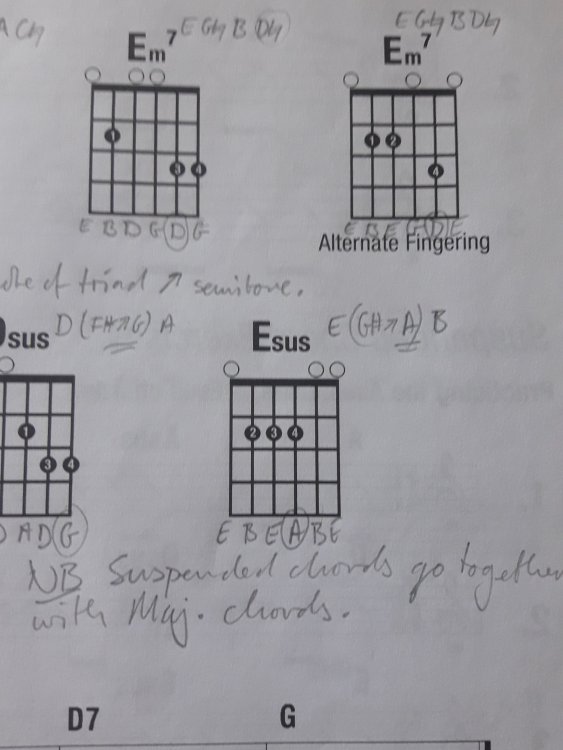 A C♮
Em7 E G♮ B (D♮)
E G♮ B D♮
Em7
1
3 4
E B D G D G
1 2
4
E B E G D E
Alternate Fingering
of triad ↗ semitone.
sus D (F#↗G) A
Esus E (G#↗A) B
1
3 4
A D G
2 3 4
E B E A B E
NB Suspended chords go together
with Maj. chords.
D7 G